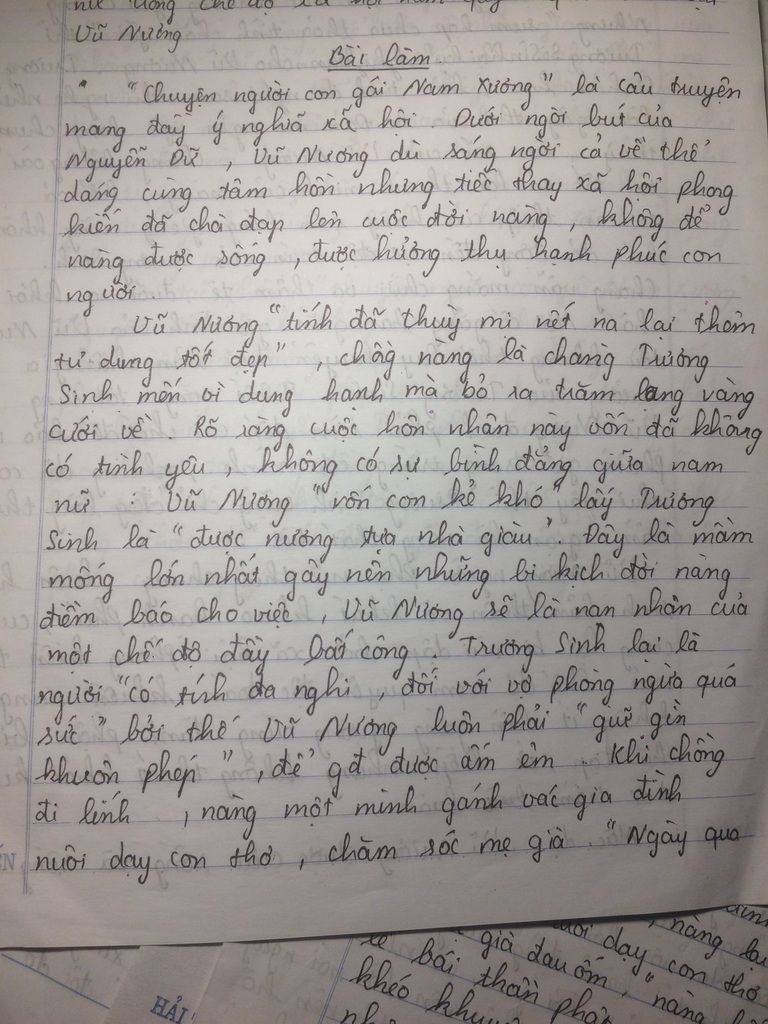 Vũ Nương
Bài làm
" Chuyện người con gái Nam Xương" là câu truyện
mang đầy ý nghĩa xã hội. Dưới ngòi bút của
Nguyễn Dữ , Vũ Nương dù sáng ngời cả về thể
dáng cùng tâm hồn nhưng tiếc thay xã hội phong
kiến đã chà đạp lên cuộc đời nàng , không để
nàng được sống , được hưởng thụ hạnh phúc con
người.
Vũ Nương "tính đã thuỳ mị nết na lại thêm
tư dung tốt đẹp" , chồng nàng là chàng Trương
Sinh mến vì dung hạnh mà bỏ ra trăm lạng vàng
cưới về . Rõ ràng cuộc hôn nhân này vốn đã không
có tình yêu , không có sự bình đẳng giữa nam
nữ : Vũ Nương "vốn con kẻ khó" lấy Trương
Sinh là "được nương tựa nhà giàu". Đây là mầm
mống lớn nhất gây nên những bi kịch đời nàng
điềm báo cho việc , Vũ Nương sẽ là nạn nhân của
một chế độ đầy bất công. Trương Sinh lại là
người "có tính đa nghi , đối với vợ phòng ngừa quá
sức" bởi thế Vũ Nương luôn phải "giữ gìn
khuôn phép" , để gđ được ấm êm . Khi chồng
đi lính , nàng một mình gánh vác gia đình
nuôi dạy con thơ , chăm sóc mẹ già . "Ngày qua
nàng lại
già đau ốm, "nàng
dạy con thơ
lễ bái thần phật
khéo khuyên
HẢI